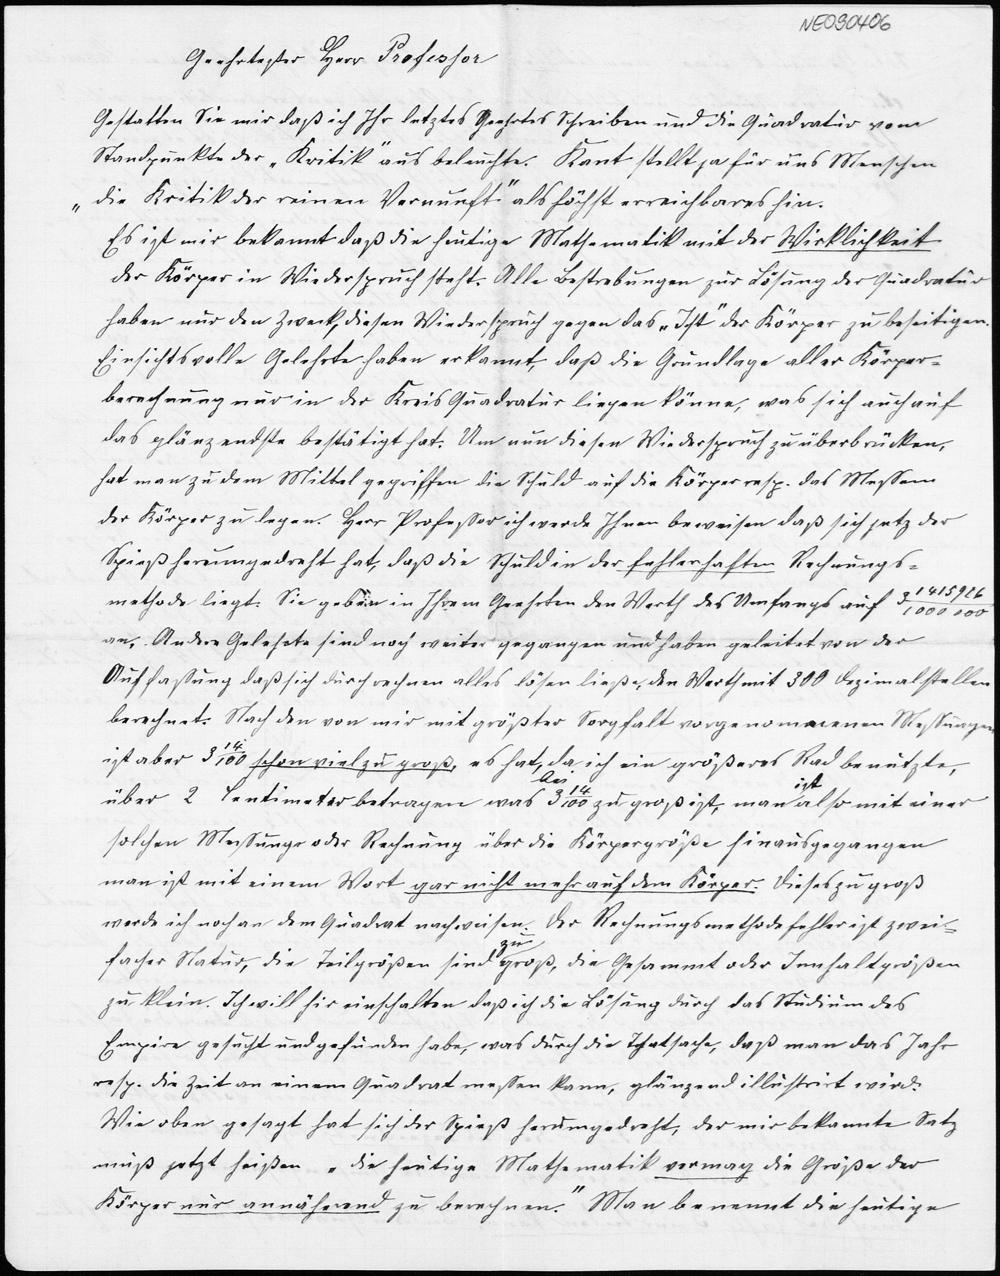 NE030406
Geehrtester Herr Professor
Gestatten Sie mir daß ich Ihr letztes Geehrtes Schreiben und die Quadratur vom
Standpunkte der „Kritik" aus beleuchte. Kant stellt ja für uns Menschen
„die Kritik der reinen Vernunft" als höchst erreichbares hin.
Es ist mir bekannt daß die heutige Mathematik mit der Wirklichkeit
der Körper in Wiederspruch steht. Alle Bestrebungen zur Lösung der Quadratur
haben nur den Zweck, diesen Wiederspruch gegen das „Ist" der Körper zu beseitigen.
Einsichtsvolle Gelehrte haben erkannt, daß die Grundlage aller Körper-
berechnung nur in der Kreis Quadratur liegen könne, was sich auch auf
das glänzendste bestätigt hat. Um nun diesen Wiederspruch zu überbrücken,
hat man zu dem Mittel gegriffen die Schuld auf die Körper resp. das Messen
der Körper zu legen. Herr Professor ich werde Ihnen beweisen daß sich jetz der
Spieß herumgedreht hat, daß die Schuld in der fehlerhaften Rechnungs-
methode liegt. Sie geben in Ihrem Geehrten den Werth des Umfangs auf 3 1415926/1000 000
an. Andre Gelehrte sind noch weiter gegangen und haben geleitet von der
Auffassung daß sich durch rechnen alles lösen ließe, den Werth mit 300 Dezimalstellen
berechnet. Nach den von mir mit größter Sorgfalt vorgenommenen Messungen
ist aber 3 14/100 schon viel zu groß, es hat, da ich ein größeres Rad benutzte,
über 2 Centimeter betragen was bei 3 14/100 zu groß ist, man ist also mit einer
solchen Messunge oder Rechnung über die Körpergröße hinausgegangen
man ist mit einem Wort gar nicht mehr auf dem Körper. Dieses zu groß
werde ich noch an dem Quadrat nachweisen. Der Rechnungsmethodefehler ist zwei-
facher Natur, die Teilgrößen sind zu groß, die Gesammt oder Innhaltgrößen
zu klein. Ich will hir einschalten daß ich die Lösung durch das Studium des
Empire gesucht und gefunden habe, was durch die Thatsache, daß man das Jahr
resp. die Zeit an einem Quadrat messen kann, glänzend illustrirt wird.
Wie oben gesagt hat sich der Spieß herumgedreht, der mir bekannte Satz
muß jetzt heißen „die heutige Mathematik vermag die Größe der
Körper nur annähernd zu berechnen." Man benennt die heutige